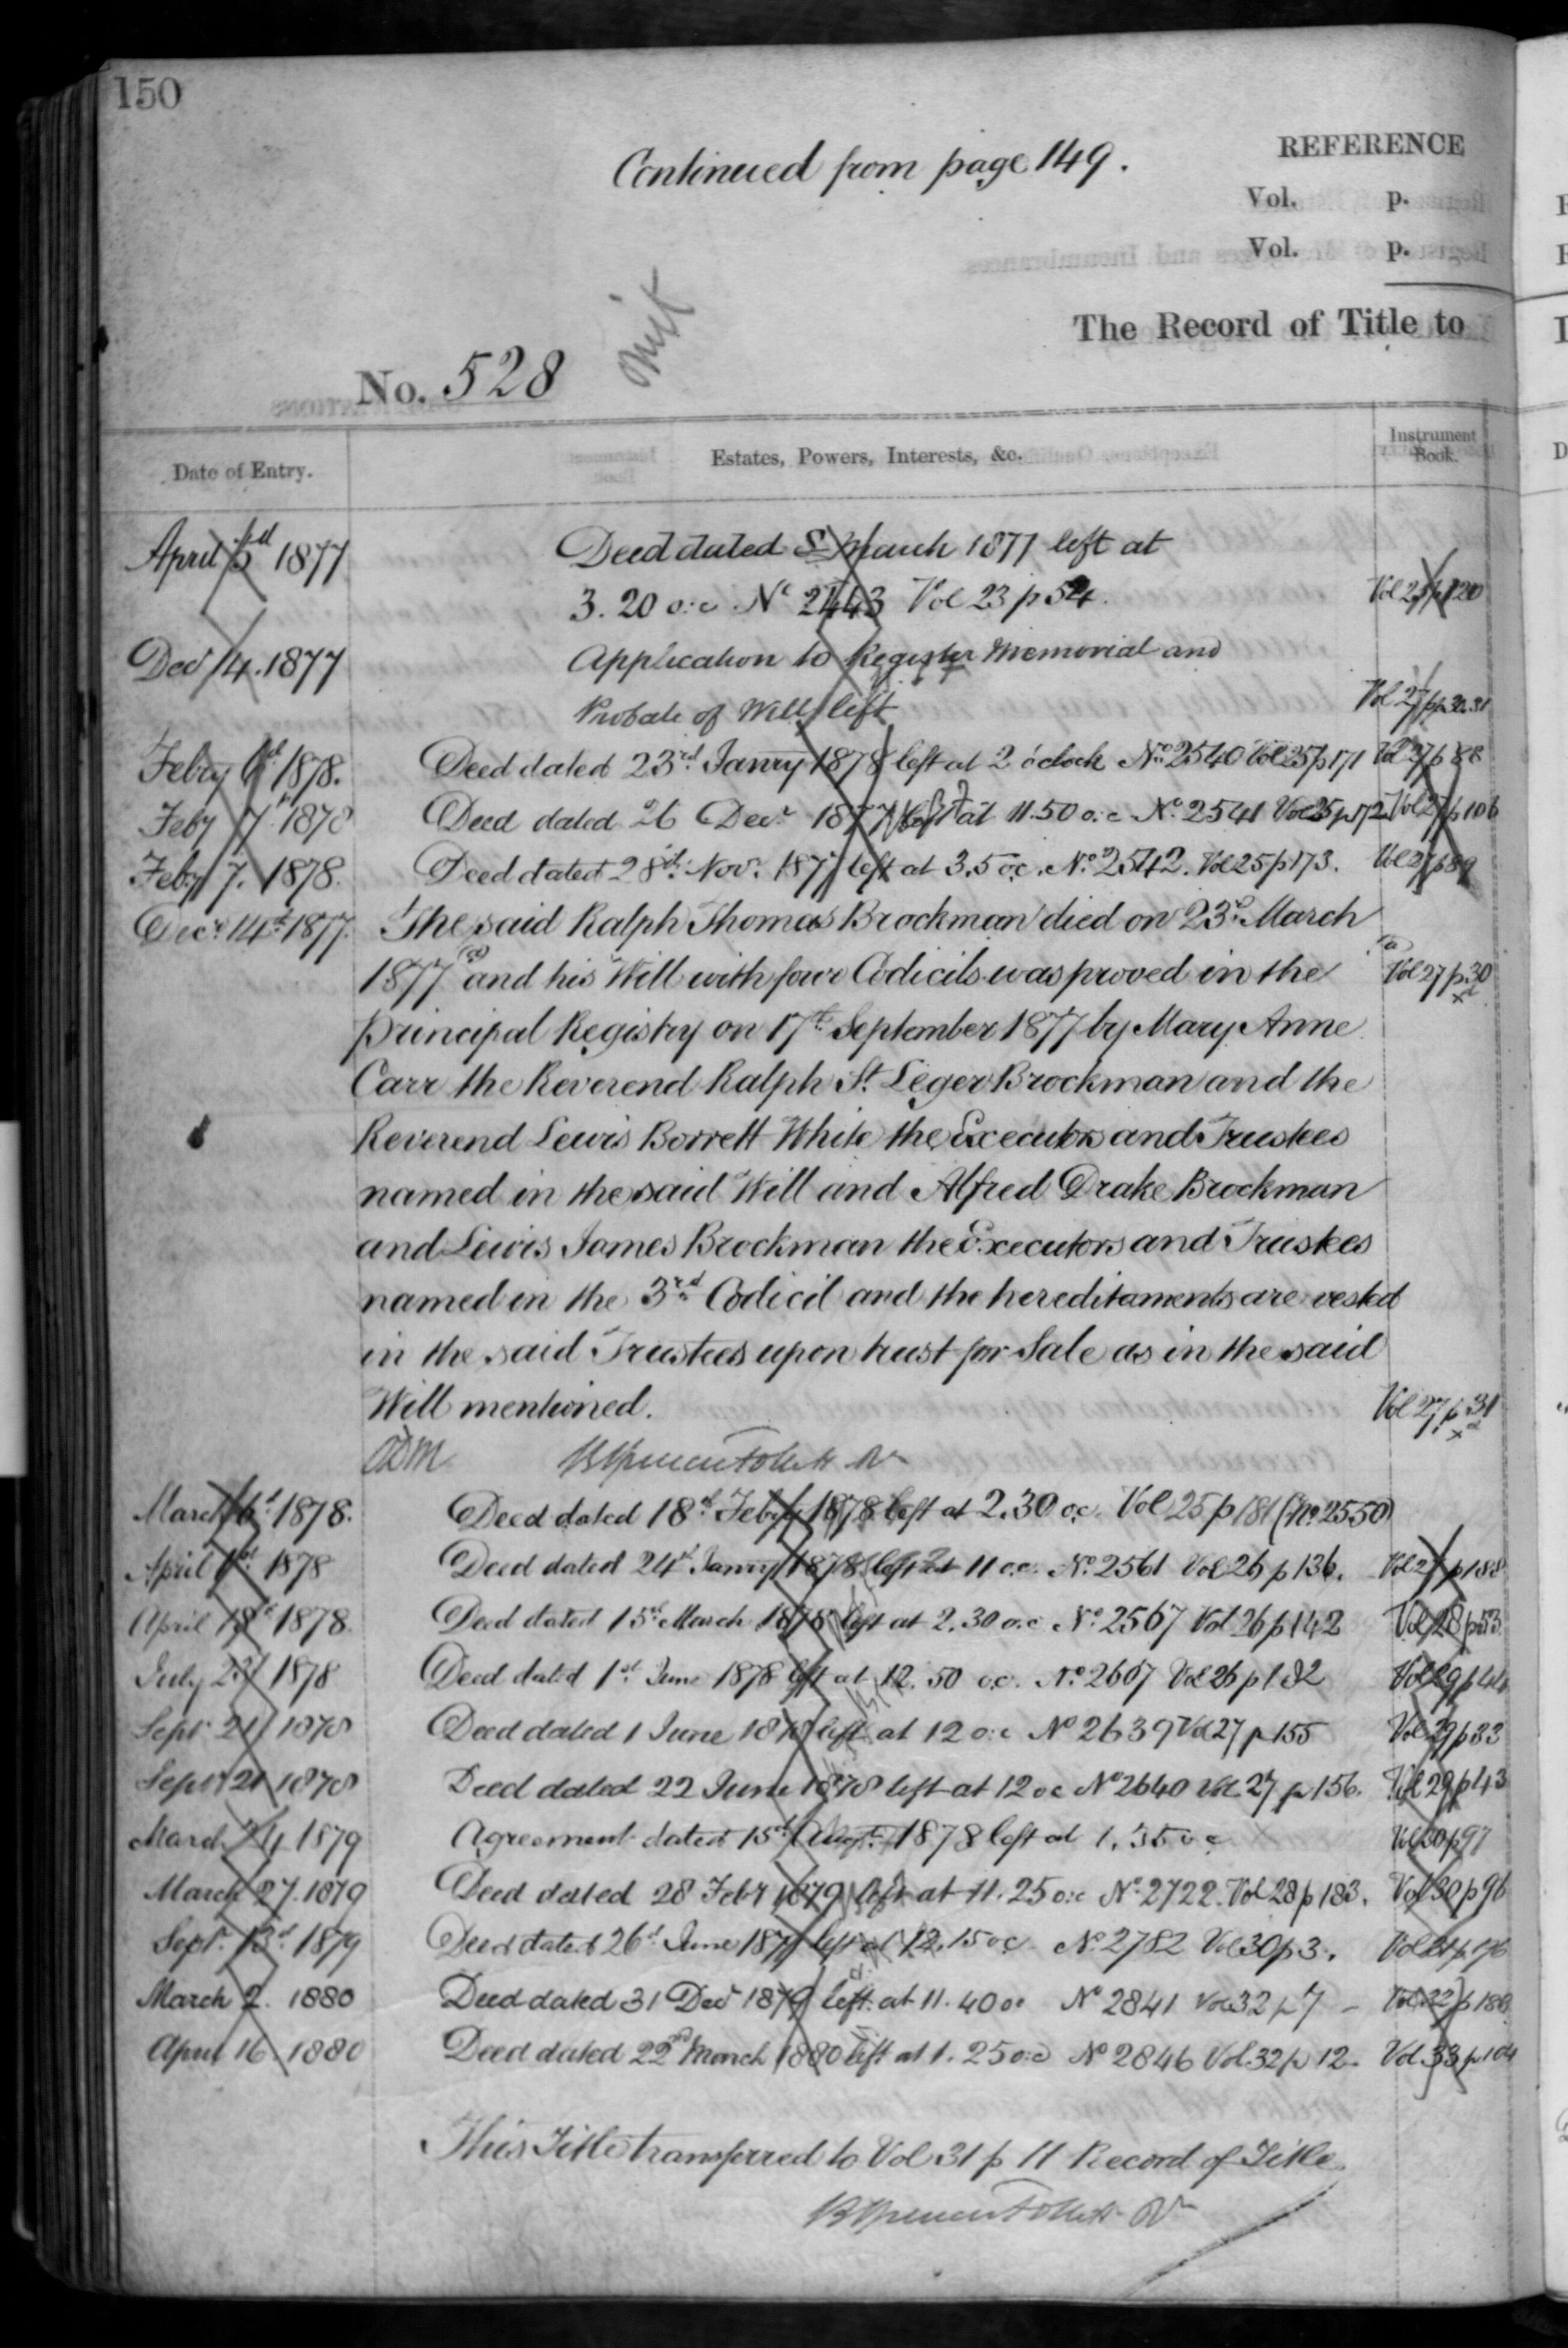 150
Continued from page 149.
REFERENCE
Vol. p.
Vol. p.
The Record of Title to
omit
No. 528
Date of Entry.
Estates, Powers, Interests, &c.
Instrument Book.
April 3d 1877 Deed dated 8 March 1877 left at
3. 20 o:c No 2443 Vol 23 p 54. Vol 25 p 120
Decr 14. 1877 Application to Register Memorial and
Probate of Will left Vol 27 pp 30.31
Febry 6d 1878. Deed dated 23rd Janry 1878 left at 2 o'clock No. 2540 Vol 25 p 171 Vol 27 p 88
Feby 7 1878 Deed dated 26 Decr 1877 left at 11.50 o:c No. 2541 Vol 25 p 172 Vol 27 p 106
Feby 7. 1878. Deed dated 28d Novr 1877 left at 3.5 o.c. No. 2542. Vol 25 p 173. Vol 27 p 89
Decr 14th 1877. The said Ralph Thomas Brockman died on 23d March
1877 (a) and his Will with four Codicils was proved in the (a) Vol 27 p. 30
principal Registry on 17th September 1877 by Mary Anne
Carr the Reverend Ralph St. Leger Brockman and the
Reverend Lewis Borrett White the Executors and Trustees
named in the said Will and Alfred Drake Brockman
and Lewis James Brockman the Executors and Trustees
named in the 3rd Codicil and the hereditaments are vested
in the said Trustees upon trust for Sale as in the said
Will mentioned. Vol 27 p 31
March 6d 1878. Deed dated 18d Febry 1878 left at 2.30 o.c. Vol 25 p 181 (No. 2550)
April 1st 1878 Deed dated 24d Janry 1878 left at 11 o.c. No. 2561 Vol 26 p 136. Vol 27 p 188
April 18d 1878. Deed dated 15d March 1878 left at 2.30 o.c No. 2567 Vol 26 p 142 Vol 28 p 53
July 23 1878 Deed dated 1st June 1878 left at 12. 50 o.c. No. 2607 Vol 26 p 182 Vol 29 p 44
Sept 21 1878 Deed dated 1 June 1878 left at 12 o:c No 2639 Vol 27 p 155 Vol 29 p 33
Septr 21 1878 Deed dated 22 June 1878 left at 12 oc No 2640 Vol 27 p 156. Vol 29 p 43
March 24 1879 Agreement dated 15th Augt 1878 left at 1. 35 o c Vol 30 p 97
March 27. 1879 Deed dated 28 Feby 1879 left at 11. 25 o:c No. 2722. Vol 28 p 183. Vol 30 p 96
Sept. 13d 1879 Deed dated 26d June 1879 left at 12.15 o.c. No. 2782 Vol 30 p 3.
March 2. 1880 Deed dated 31 Decr 1879 left at 11. 40 oc No 2841 Vol 32 p 7 - Vol 32 p 188
April 16. 1880 Deed dated 22nd March 1880 left at 1. 25 o:c No 2846 Vol 32 p 12. Vol 33 p 104
This Title transferred to Vol 31 p 11 Record of Title.